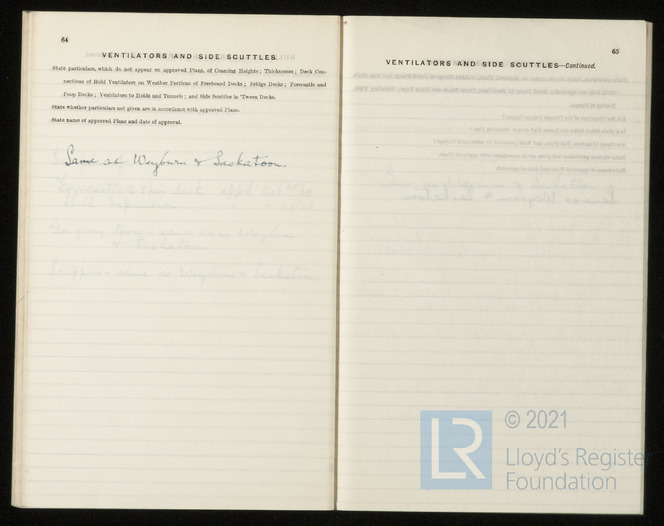 64
VENTILATORS AND SIDE SCUTTLES
State particulars, which do not appear on approved Plans, of Coaming Heights; Thicknesses; Deck Con-
nections of Hold Ventilators on Weather Portions of Freeboard Decks; Bridge Decks; Forecastle and
Poop Decks; Ventilators to Holds and Tunnels; and Side Scuttles in 'Tween Decks.
State whether particulars not given are in accordance with approved Plans.
State name of approved Plans and date of approval.
Same as Weyburn & Saskatoon.
65
VENTILATORS AND SIDE SCUTTLES—Continued.
© 2021
LR
Lloyd's Register
Foundation